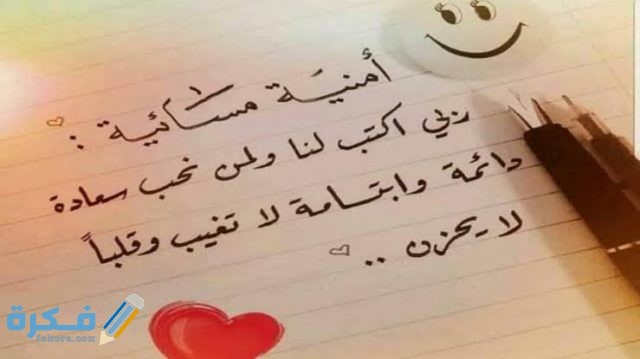 أمنية مسائية :
ربي اكتب لنا ولمن نحب سعادة
دائمة وابتسامة لا تغيب وقلباً
لا يحزن ..
فكرة
fekera.com